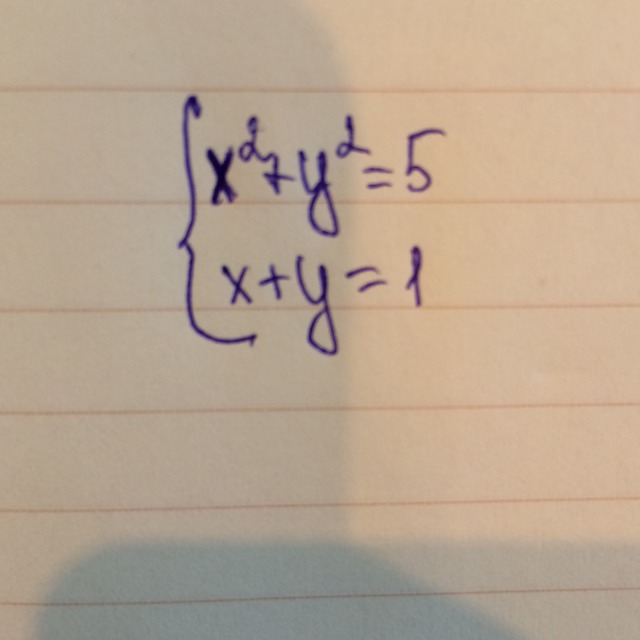 x²+y²=5
x+y=1